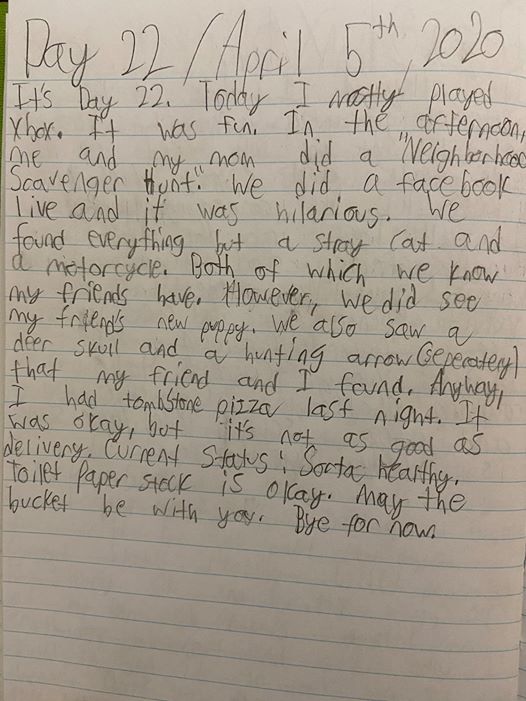 Day 22/April 5th, 2020
It's Day 22. Today I mostly played
Xbox. It was fun. In the afternoon,
me and my mom did a "Neighborhood
Scavenger Hunt." We did a facebook
live and it was hilarious. We
found everything but a stray cat and
a motorcycle. Both of which we know
my friends have. However, we did see
my friend's new puppy. We also saw a
deer skull and a hunting arrow (seperately)
that my friend and I found. Anyway,
I had tombstone pizza last night. It
was okay, but it's not as good as
delivery. Current Status: Sorta healthy.
Toilet paper stock is okay. May the
bucket be with you. Bye for now.